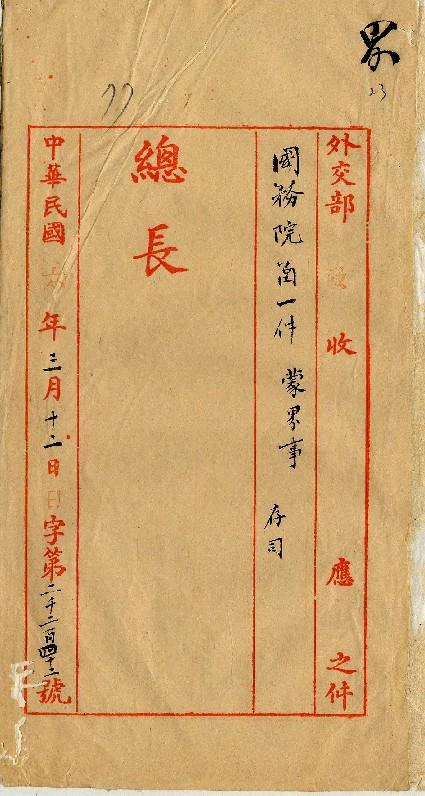 界
23
外交部 收 應 之件
國務院函一件 蒙界事 存司
總長
中華民國 六 年 三 月 十二 日 日 字第 二千二百四十二 號